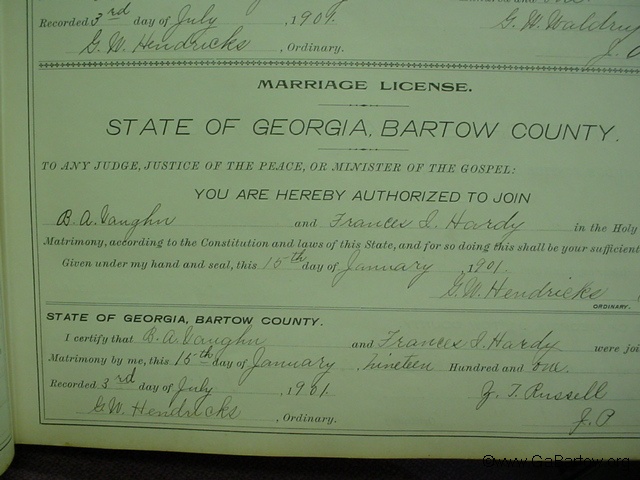 Recorded 3rd day of July , 1901. G. H. Waldrup
G. W. Hendricks , Ordinary. J.
MARRIAGE LICENSE.
STATE OF GEORGIA, BARTOW COUNTY.
TO ANY JUDGE, JUSTICE OF THE PEACE, OR MINISTER OF THE GOSPEL:
YOU ARE HEREBY AUTHORIZED TO JOIN
B. A. Vaughn and Frances I. Hardy in the Holy
Matrimony, according to the Constitution and laws of this State, and for so doing this shall be your sufficient
Given under my hand and seal, this 15th day of January , 1901.
G. W. Hendricks
ORDINARY.
STATE OF GEORGIA, BARTOW COUNTY.
I certify that B. A. Vaughn and Frances I. Hardy were joi
Matrimony by me, this 15th day of January nineteen Hundred and one.
Recorded 3rd day of July , 1901. Z. T. Russell
G. W. Hendricks , Ordinary. J. P
©www.GaBartow.org